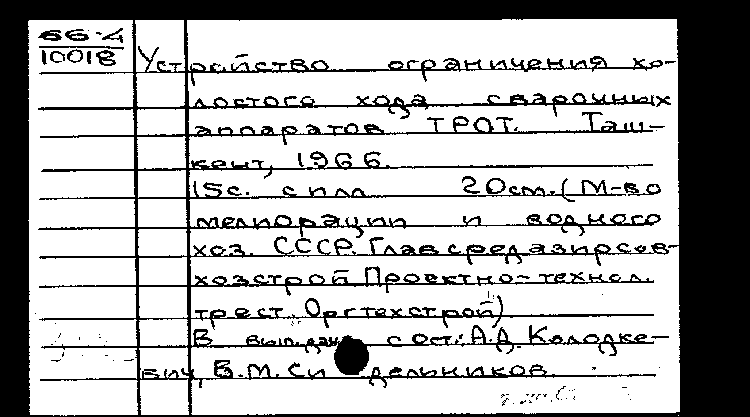 66-4
10018
Устройство ограничения хо-
лостого хода сварочных
аппаратов ТРОТ. Таш-
кент, 1966.
15с. с илл 20см. (М-во
мелиорации и водного
хоз. СССР. Главсредазирсов-
хозстрой Проектно-технол.
трест „Оргтехстрой")
В вып. дан. сост.: А.Д. Колодке-
вич, В.М. Си дельников.